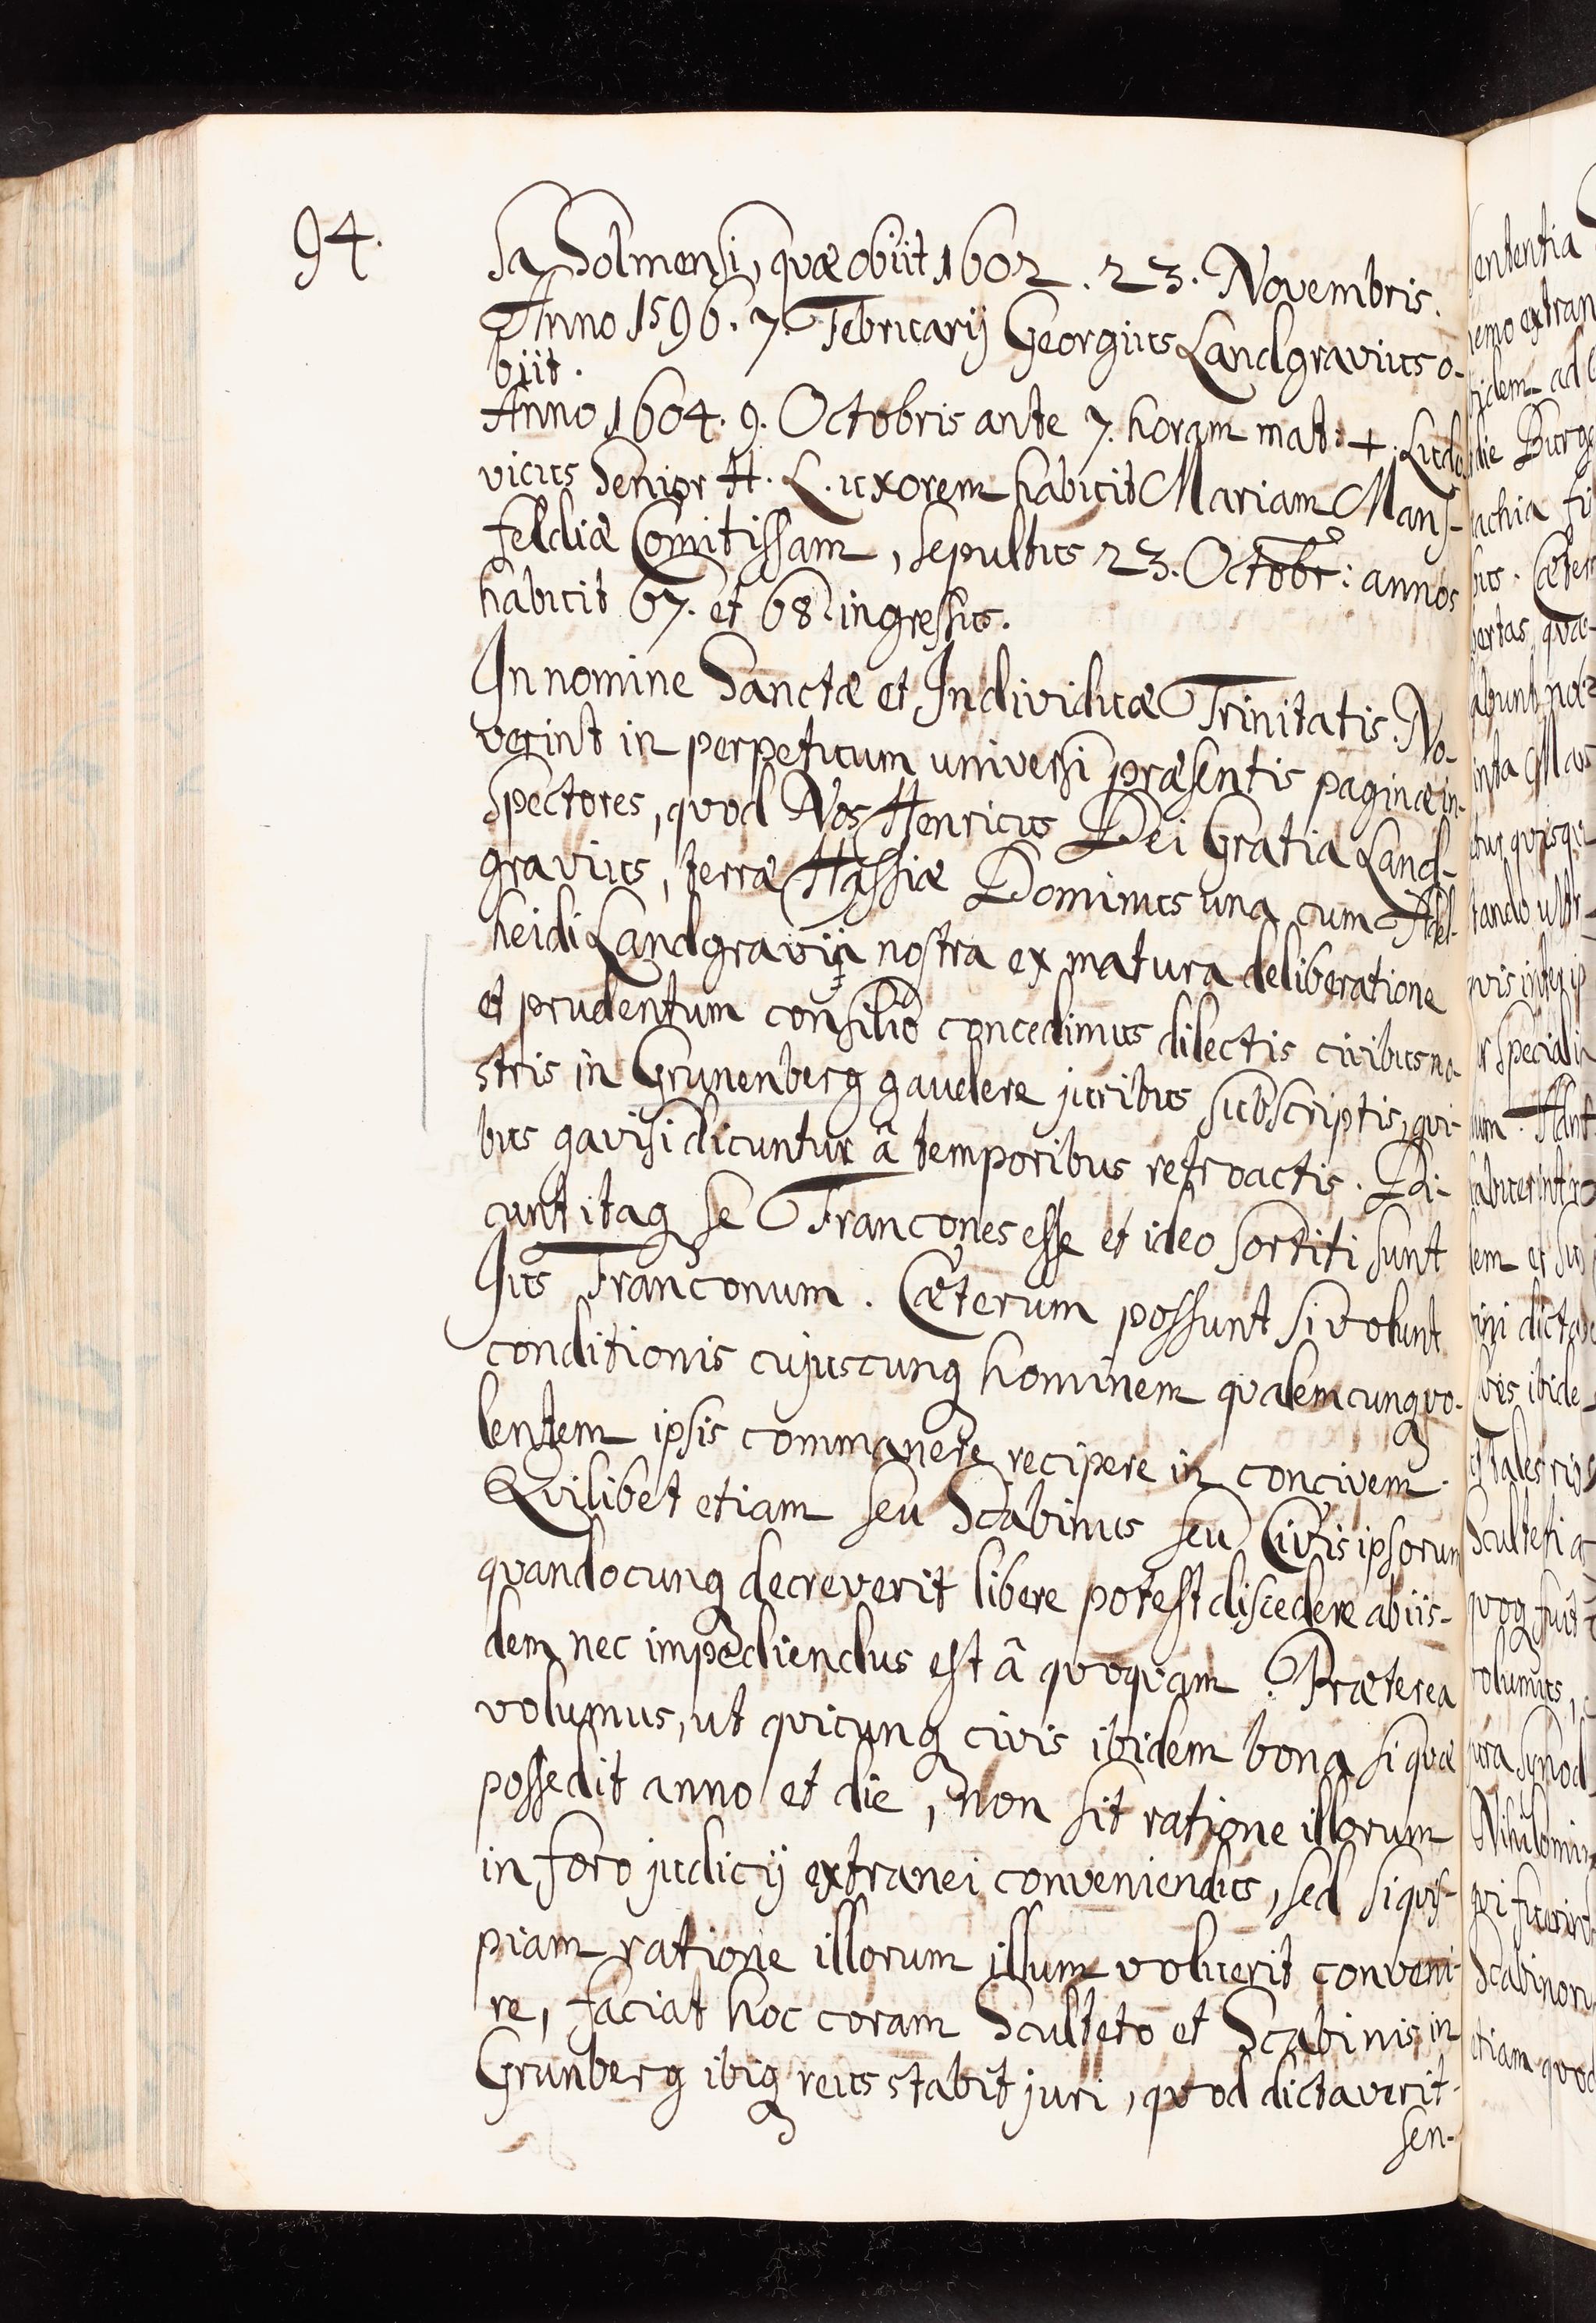 94.
sa Solmensi, quæ obiit 1602. 23. Novembris.
Anno 1596. 7. Februarij Georgius Landgravius o-
biit.
Anno 1604. 9. Octobris ante 7. horam mat: +. Ludo
vicus Senior H. L. uxorem habuit Mariam Mans-
feldiæ Comitissam, sepultus 23. Octobr: annos
habuit 67. et 68. ingressus.
In nomine Sanctæ et Individuæ Trinitatis. No-
verint in perpetuum universi præsentis paginæ in-
spectores, quod Nos Henricus Dei Gratia Land-
gravius, terræ Hassiæ Dominus una cum Adel-
heidi Landgravia nostra ex matura deliberatione
et prudentum consilio concedimus dilectis civibus no-
stris in Grunenberg gaudere juribus subscriptis, qui-
bus gavisi dicuntur â temporibus retroactis. Di-
cunt itaq se Francones esse et ideo sortiti sunt
Jus Franconum. Cæterum possunt si volunt
conditionis cujuscunq hominem qualemcunq vo-
lentem ipsis commanere recipere in concivem.
Quilibet etiam seu Scabinus seu Civis ipsorum
quandocunq decreverit libere potest discedere ab iis-
dem nec impediendus est â quoquam. Præterea
volumus, ut quicunq civis ibidem bona si quæ
possedit anno et die, non sit ratione illorum
in foro judicij extranei conveniendus, sed si quis-
piam ratione illorum illum voluerit conveni-
re, faciat hoc coram Sculteto et Scabinis in
Grunberg ibiq reus stabit juri, quod dictaverit
sen-